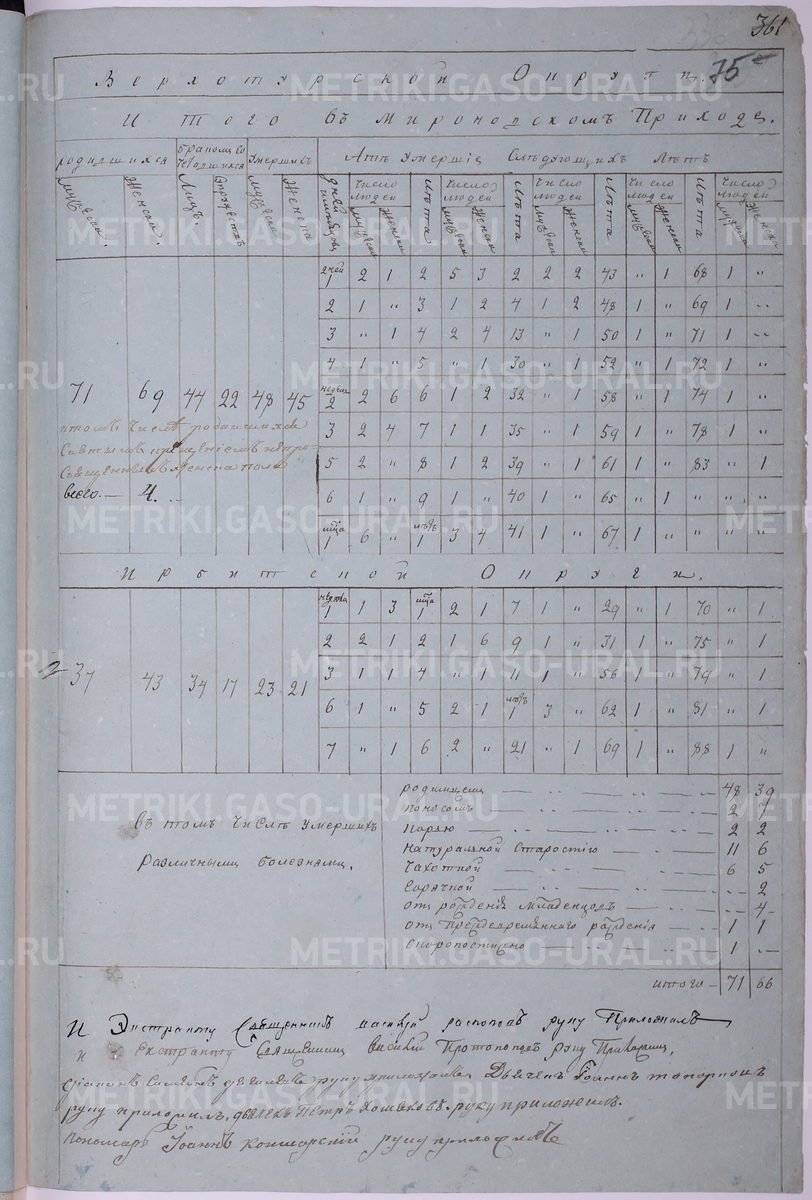 361
75
Верхотурской Округи.
И того въ Мироновскомъ Приходе.
родившихся бракомъ сочетавшихся Умершихъ Лѣтъ Умершіе Слѣдующихъ Лѣтъ
Мужеска. Женска. Лицъ. Супружествъ Мужеска Женска дней и месяцовъ Число людей Лѣта Число людей Лѣта Число людей Лѣта Число людей Лѣта Число людей
мужеска женска мужеска женска мужеска женска мужеска женска мужеска женска
дней 1 2 1 2 5 3 2 2 2 43 " 1 68 1 "
2 1 " 3 1 2 4 1 2 48 1 " 69 1 "
3 " 1 4 2 4 13 " 1 50 1 " 71 1 "
4 1 " 5 " 1 30 " 1 52 " 1 72 1 "
71 69 44 22 48 45 недель 2 2 6 6 1 2 32 " 1 58 " 1 74 1 "
въ томъ числѣ родившихся
3 2 4 7 1 1 35 " 1 59 1 " 78 1 "
5 2 " 8 1 2 39 " 1 61 " 1 83 " 1
всего 4.
6 1 " 9 1 " 40 1 " 65 " 1 " " "
м҃ца 1 6 " лѣтъ 1 3 4 41 1 " 67 1 " " " "
Ирбитской Округи.
неделя 1 1 3 м҃ца 1 2 1 7 1 " 29 " 1 70 " 1
2 2 1 2 1 6 9 1 " 31 1 " 75 " 1
37 43 34 17 23 21 3 1 1 4 " 1 11 1 " 56 1 " 79 " 1
6 1 " 5 2 1 лѣтъ 1 3 " 62 1 " 81 " 1
7 " 1 6 2 " 21 " 1 69 1 " 88 1 "
въ томъ числѣ умершихъ
различными болезнями.
родимцемъ 48 39
поносомъ 2 7
корью 2 2
натуральной старостію 11 6
Чахоткой 6 5
Горячкой 2
отъ рожденія младенцовъ 4
отъ преждевременнаго рожденія 1 1
скоропостижно 1
итого 71 66
К Экстракту Священникъ Василій распоповъ руку Приложилъ
к Екстракту Священникъ Василий Протопоповъ Руку Приложилъ,
руку приложилъ Дьячекъ Іоаннъ топорковъ
руку приложилъ, дьячекъ Петръ хомяковъ. руку приложилъ.
Пономарь Іоаннъ комарскій руку приложилъ
METRIKI.GASO-URAL.RU